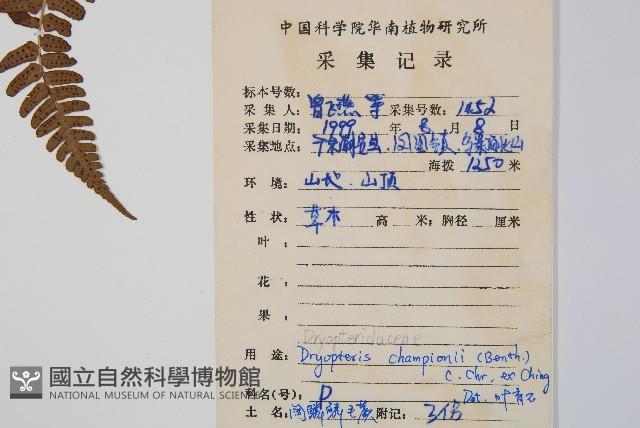 中国科学院华南植物研究所
采集记录
标本号数:
采集人: 曾飞燕 等 采集号数: 1452
采集日期: 1999 年 8 月 8 日
采集地点: 广东
海拔 1250 米
环境: 山地.山顶
性状: 草本 高 米; 胸径 厘米
叶:
花:
果:
Dryopteridaceae
用途: Dryopteris championii (Benth.)
C. Chr. ex Ching
科名(号): D Det.
土名: 阔鳞鳞毛蕨 附记: 3份
國立自然科學博物館
NATIONAL MUSEUM OF NATURAL SCIENCE